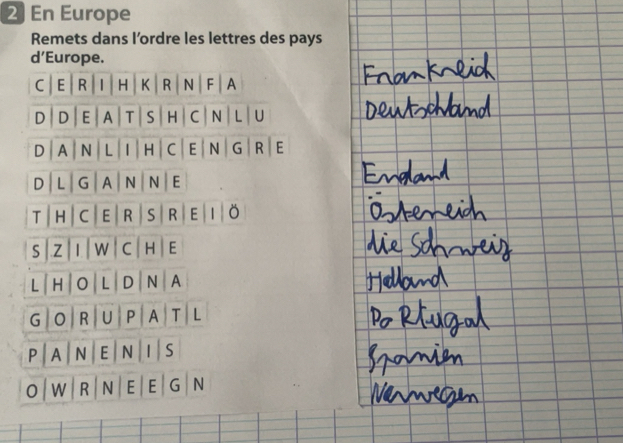 2 En Europe
Remets dans l'ordre les lettres des pays
d'Europe.
C E R I H K R N F A Frankreich
D D E A T S H C N L U Deutschland
D A N L I H C E N G R E
D L G A N N E England
T H C E R S R E I Ö Österreich
S Z I W C H E die Schweiz
L H O L D N A Holland
G O R U P A T L PoRtugal
P A N E N I S Spanien
O W R N E E G N Norwegen